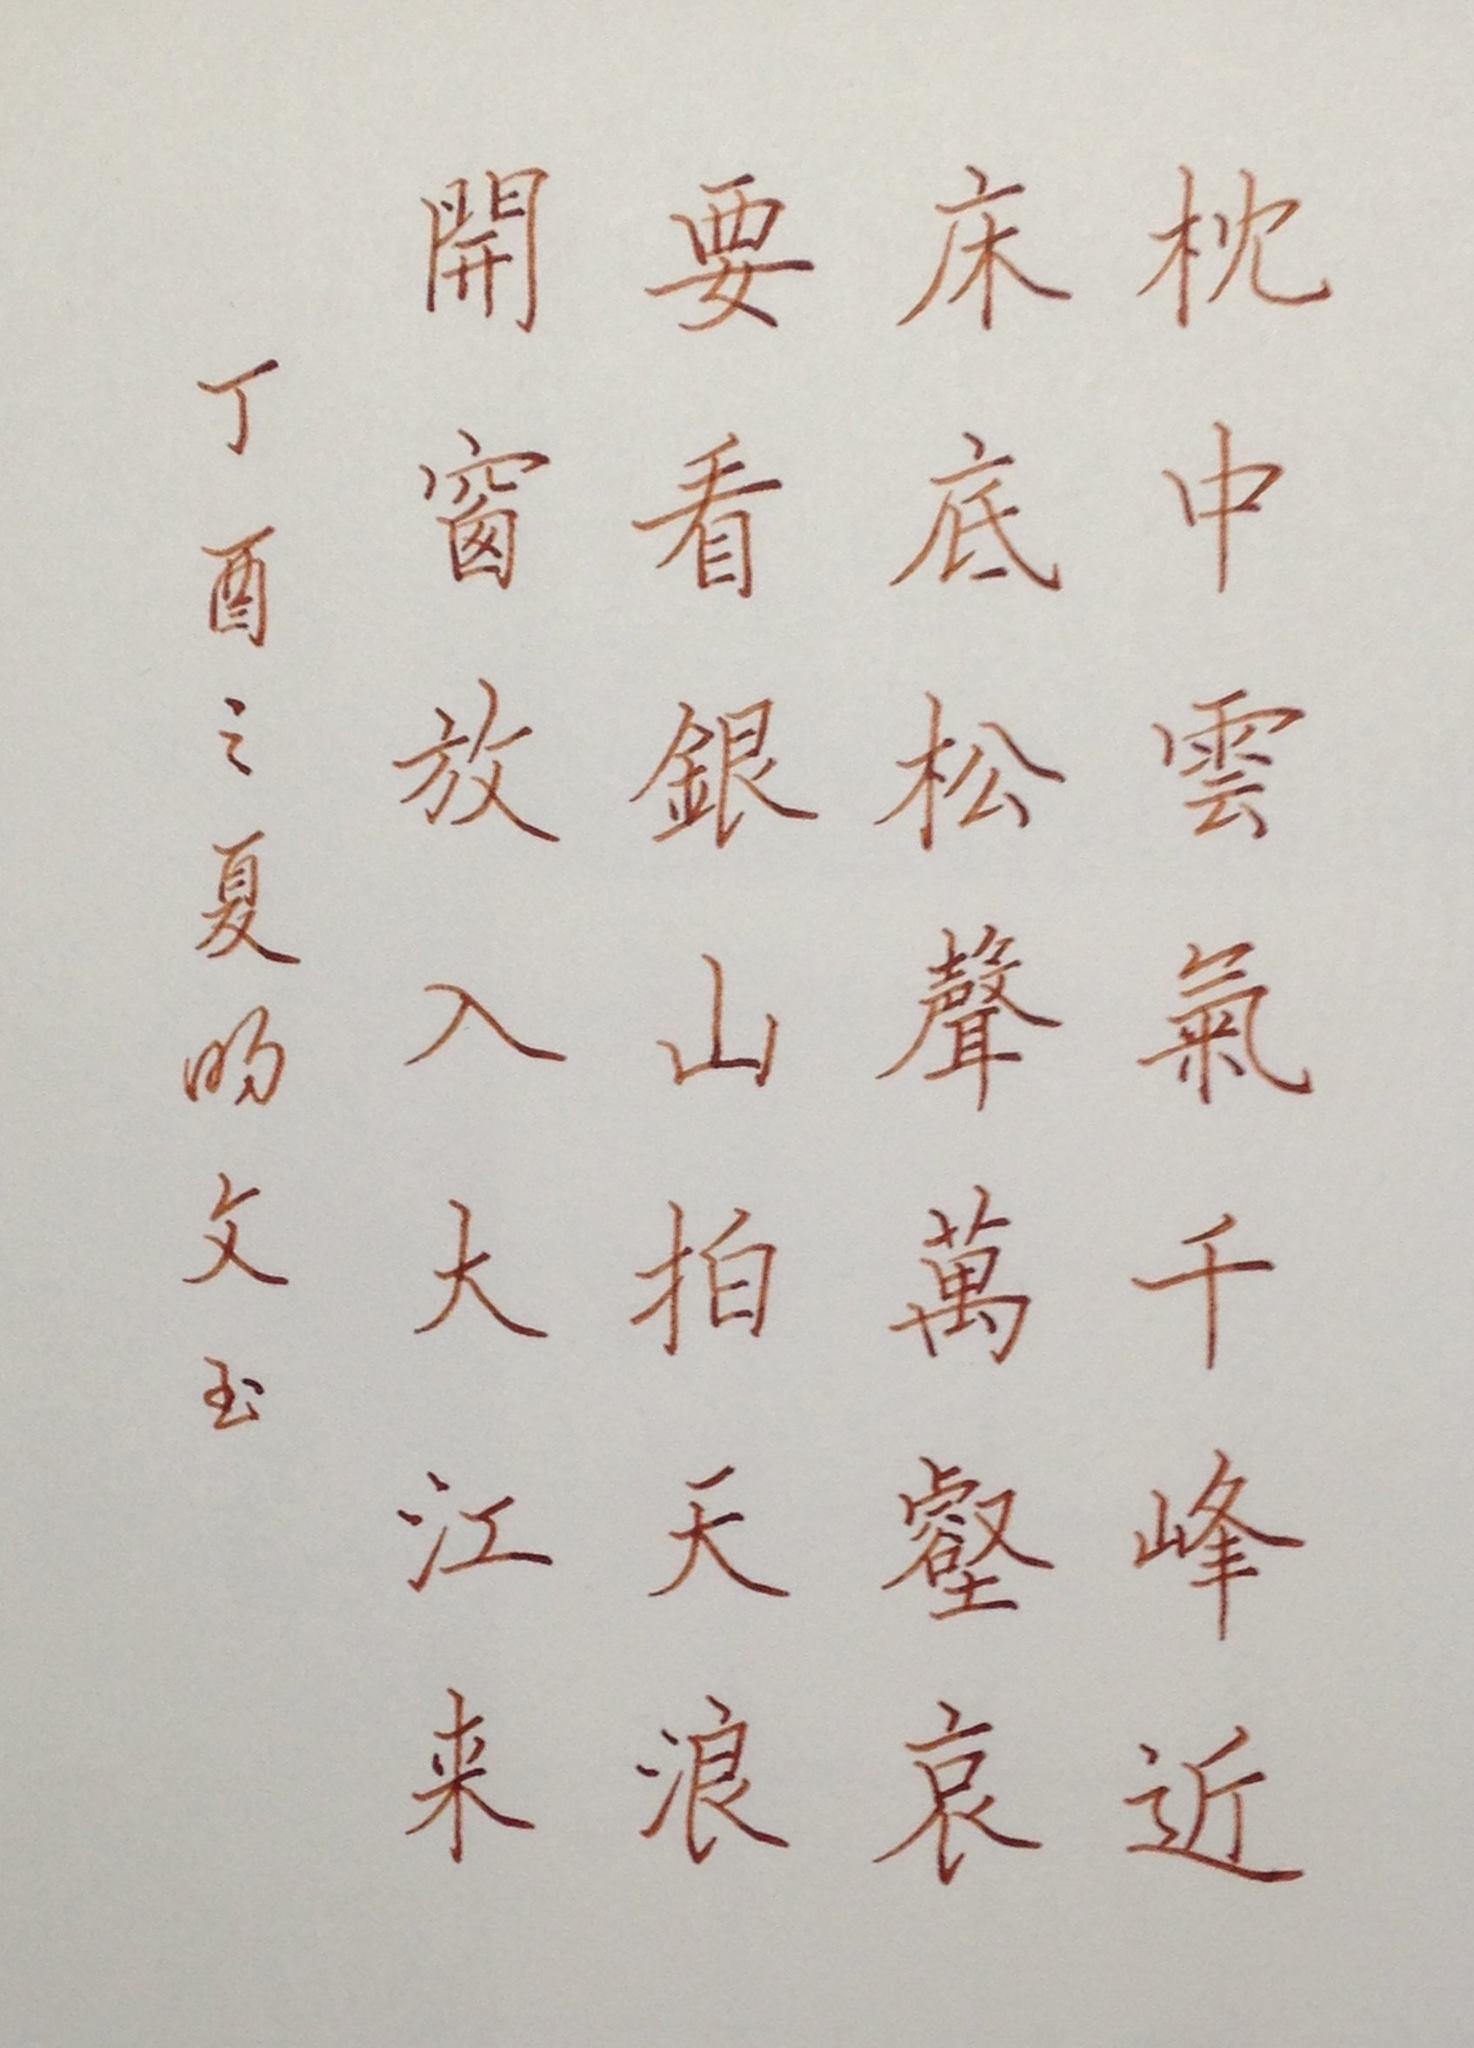 枕中雲氣千峰近
床底松聲萬壑哀
要看銀山拍天浪
開窗放入大江来
丁酉之夏旸文玉